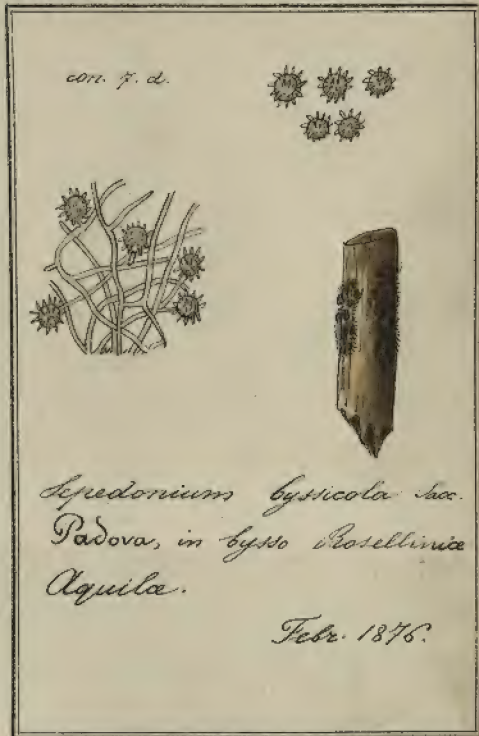 con. 7. d.
Sepedonium byssicola Sacc.
Padova, in bysso Roselliniæ
Aquilæ.
Febr. 1876.